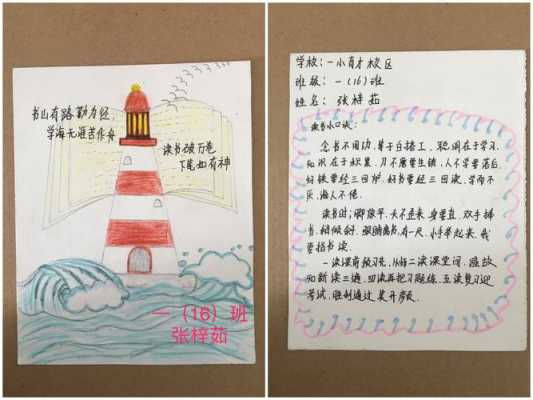 书山有路勤为径,
学海无涯苦作舟
读书破万卷
下笔如有神
一（16）班
张梓茹
学校:一小育才校区
班级:一(16)班
姓名: 张梓茹
读书小口诀:
念书不用功,等于白搭工,聪明在于学习,
知识在于积累,刀不磨要生锈,人不学要落后,
好铁要经三回炉,好书要经三回读,学而不
厌,诲人不倦.
读书时,脚放平,头不歪来身要直,双手捧
书,稍倾斜,眼睛离书,有一尺,小手举起来,我
要指书读.
一读课前预习先,二读课堂间,温故
知新读三遍,四读再把习题练,五读复习迎
考试,胜利通过笑开颜.